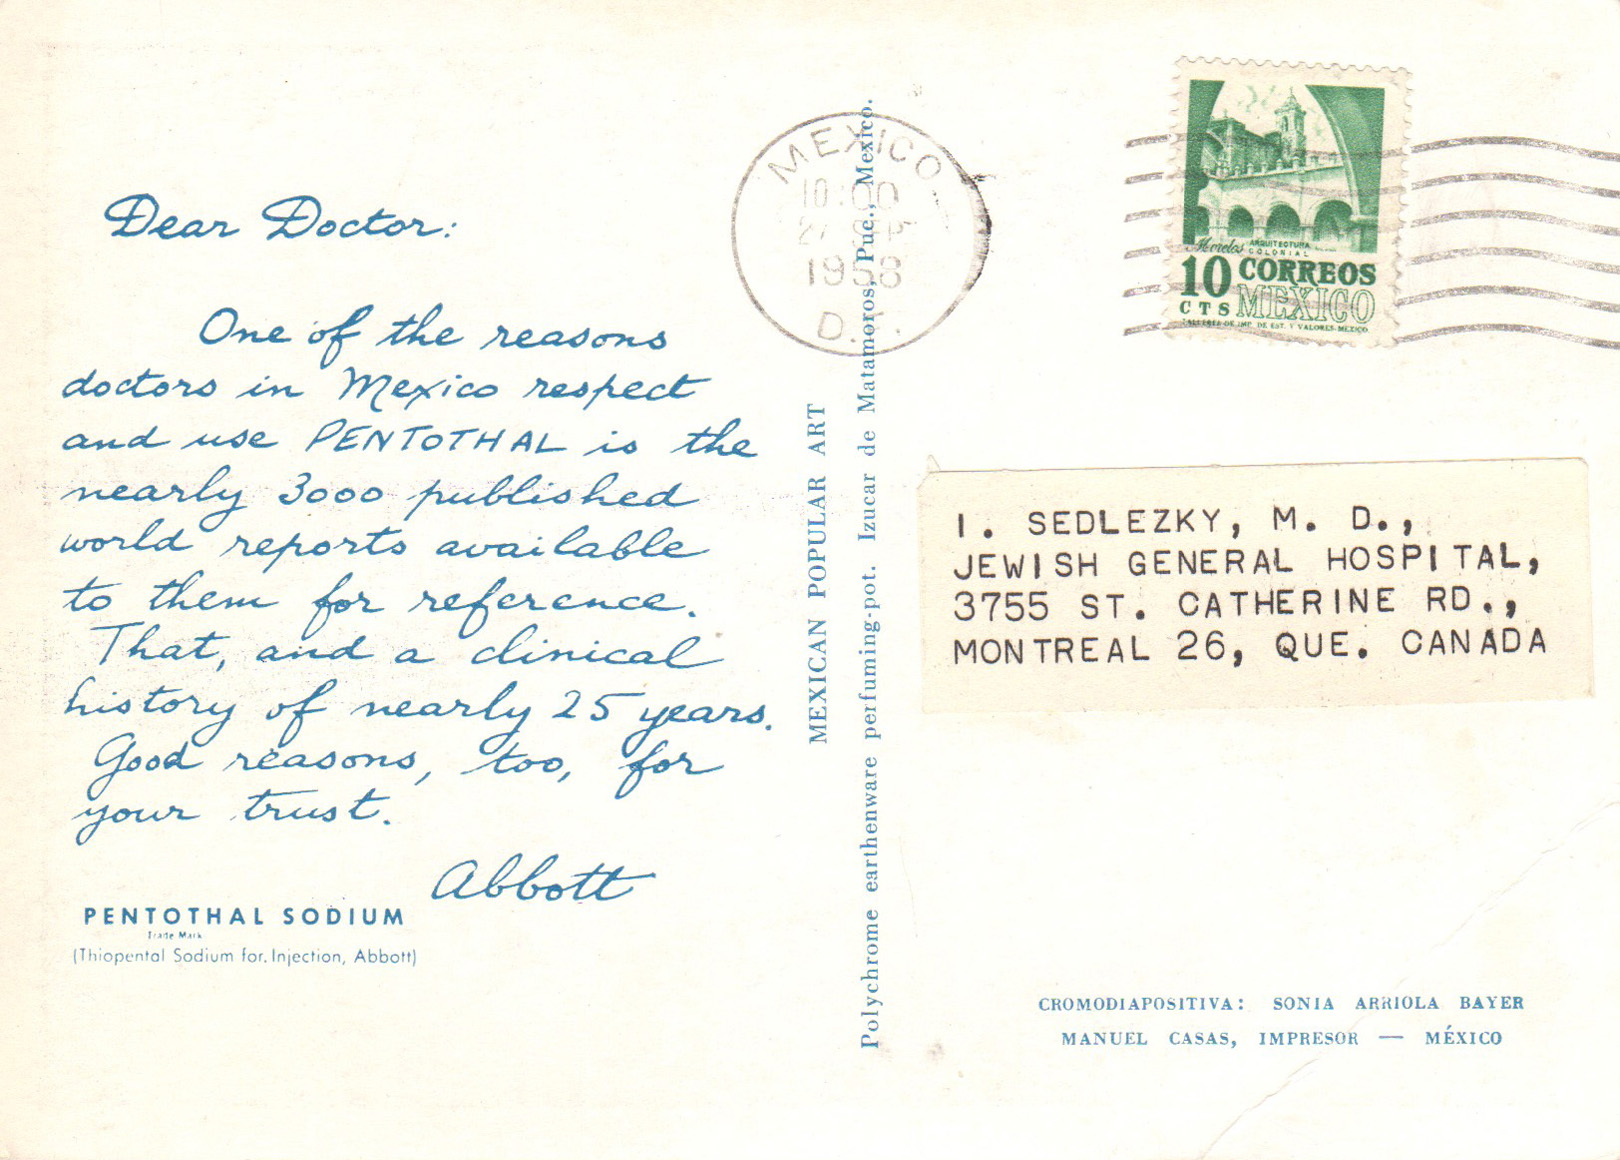 Dear Doctor:
One of the reasons
doctors in Mexico respect
and use PENTOTHAL is the
nearly 3000 published
world reports available
to them for reference.
That, and a clinical
history of nearly 25 years.
Good reasons, too, for
your trust.
Abbott
PENTOTHAL SODIUM
Trade Mark
(Thiopental Sodium for. Injection, Abbott)
MEXICAN POPULAR ART
Polychrome earthenware perfuming-pot. Izucar de Matamoros, Pue., Mexico.
MEXICO
10:00
1958
D.F.
Morelos ARQUITECTURA
COLONIAL
10 CORREOS
CTS MEXICO
TALLERES DE IMP. DE EST. Y VALORES-MEXICO
I. SEDLEZKY, M. D.,
JEWISH GENERAL HOSPITAL,
3755 ST. CATHERINE RD.,
MONTREAL 26, QUE. CANADA
CROMODIAPOSITIVA: SONIA ARRIOLA BAYER
MANUEL CASAS, IMPRESOR — MÉXICO